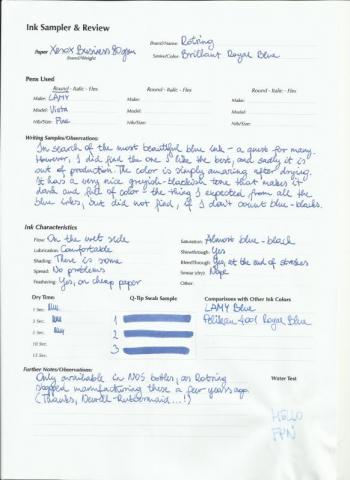 Ink Sampler & Review
Brand/Name: Rotring
Paper Xerox Business 80gsm Series/Color: Brilliant Royal Blue
Brand/Weight
Pens Used
Round - Italic - Flex Round - Italic - Flex Round - Italic - Flex
Make: LAMY Make: Make:
Model: Vista Model: Model:
Nib/Size: Fine Nib/Size: Nib/Size:
Writing Samples/Observations:
In search of the most beautiful blue ink - a quest for many.
However, I did find the one I like the best, and sadly it is
out of production. The color is simply amazing after drying.
It has a very nice greyish-blackish tone that makes it
dark and full of color - the thing I expected from all the
blue inks, but did not find, if I don't count blue-blacks.
Ink Characteristics
Flow: On the wet side Saturation: Almost blue-black
Lubrication: Comfortable Showthrough: Yes
Shading: There is some Bleedthrough: Yes, at the end of strokes
Spread: No problems Smear (dry): Nope
Feathering: Yes, on cheap paper Other:
Dry Time: Q-Tip Swab Sample Comparisons with Other Ink Colors
1 Sec. LAMY Blue
3 Sec. 1 Pelikan 4001 Royal Blue
5 Sec. 2
10 Sec. 3
15 Sec.
Further Notes/Observations:
Only available in NOS bottles, as Rotring Water Test
stopped manufacturing these a few years ago.
(Thanks, Newell-Rubbermaid...!)
HELLO
FPN